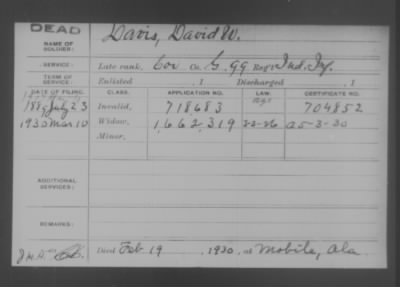 DEAD
NAME OF SOLDIER: Davis, David W.
SERVICE: Late rank, Cor Co. G, 99 Reg't Ind. Inf.
TERM OF SERVICE: Enlisted , 1 Discharged , 1
DATE OF FILING. CLASS. APPLICATION NO. LAW. CERTIFICATE NO.
1889 July 23 Invalid, 718683 704852
1930 Mar 10 Widow, 1,662,319 22-26 A5-3-30
Minor,
ADDITIONAL SERVICES:
REMARKS:
Died Feb 19, 1930, at Mobile, Ala.